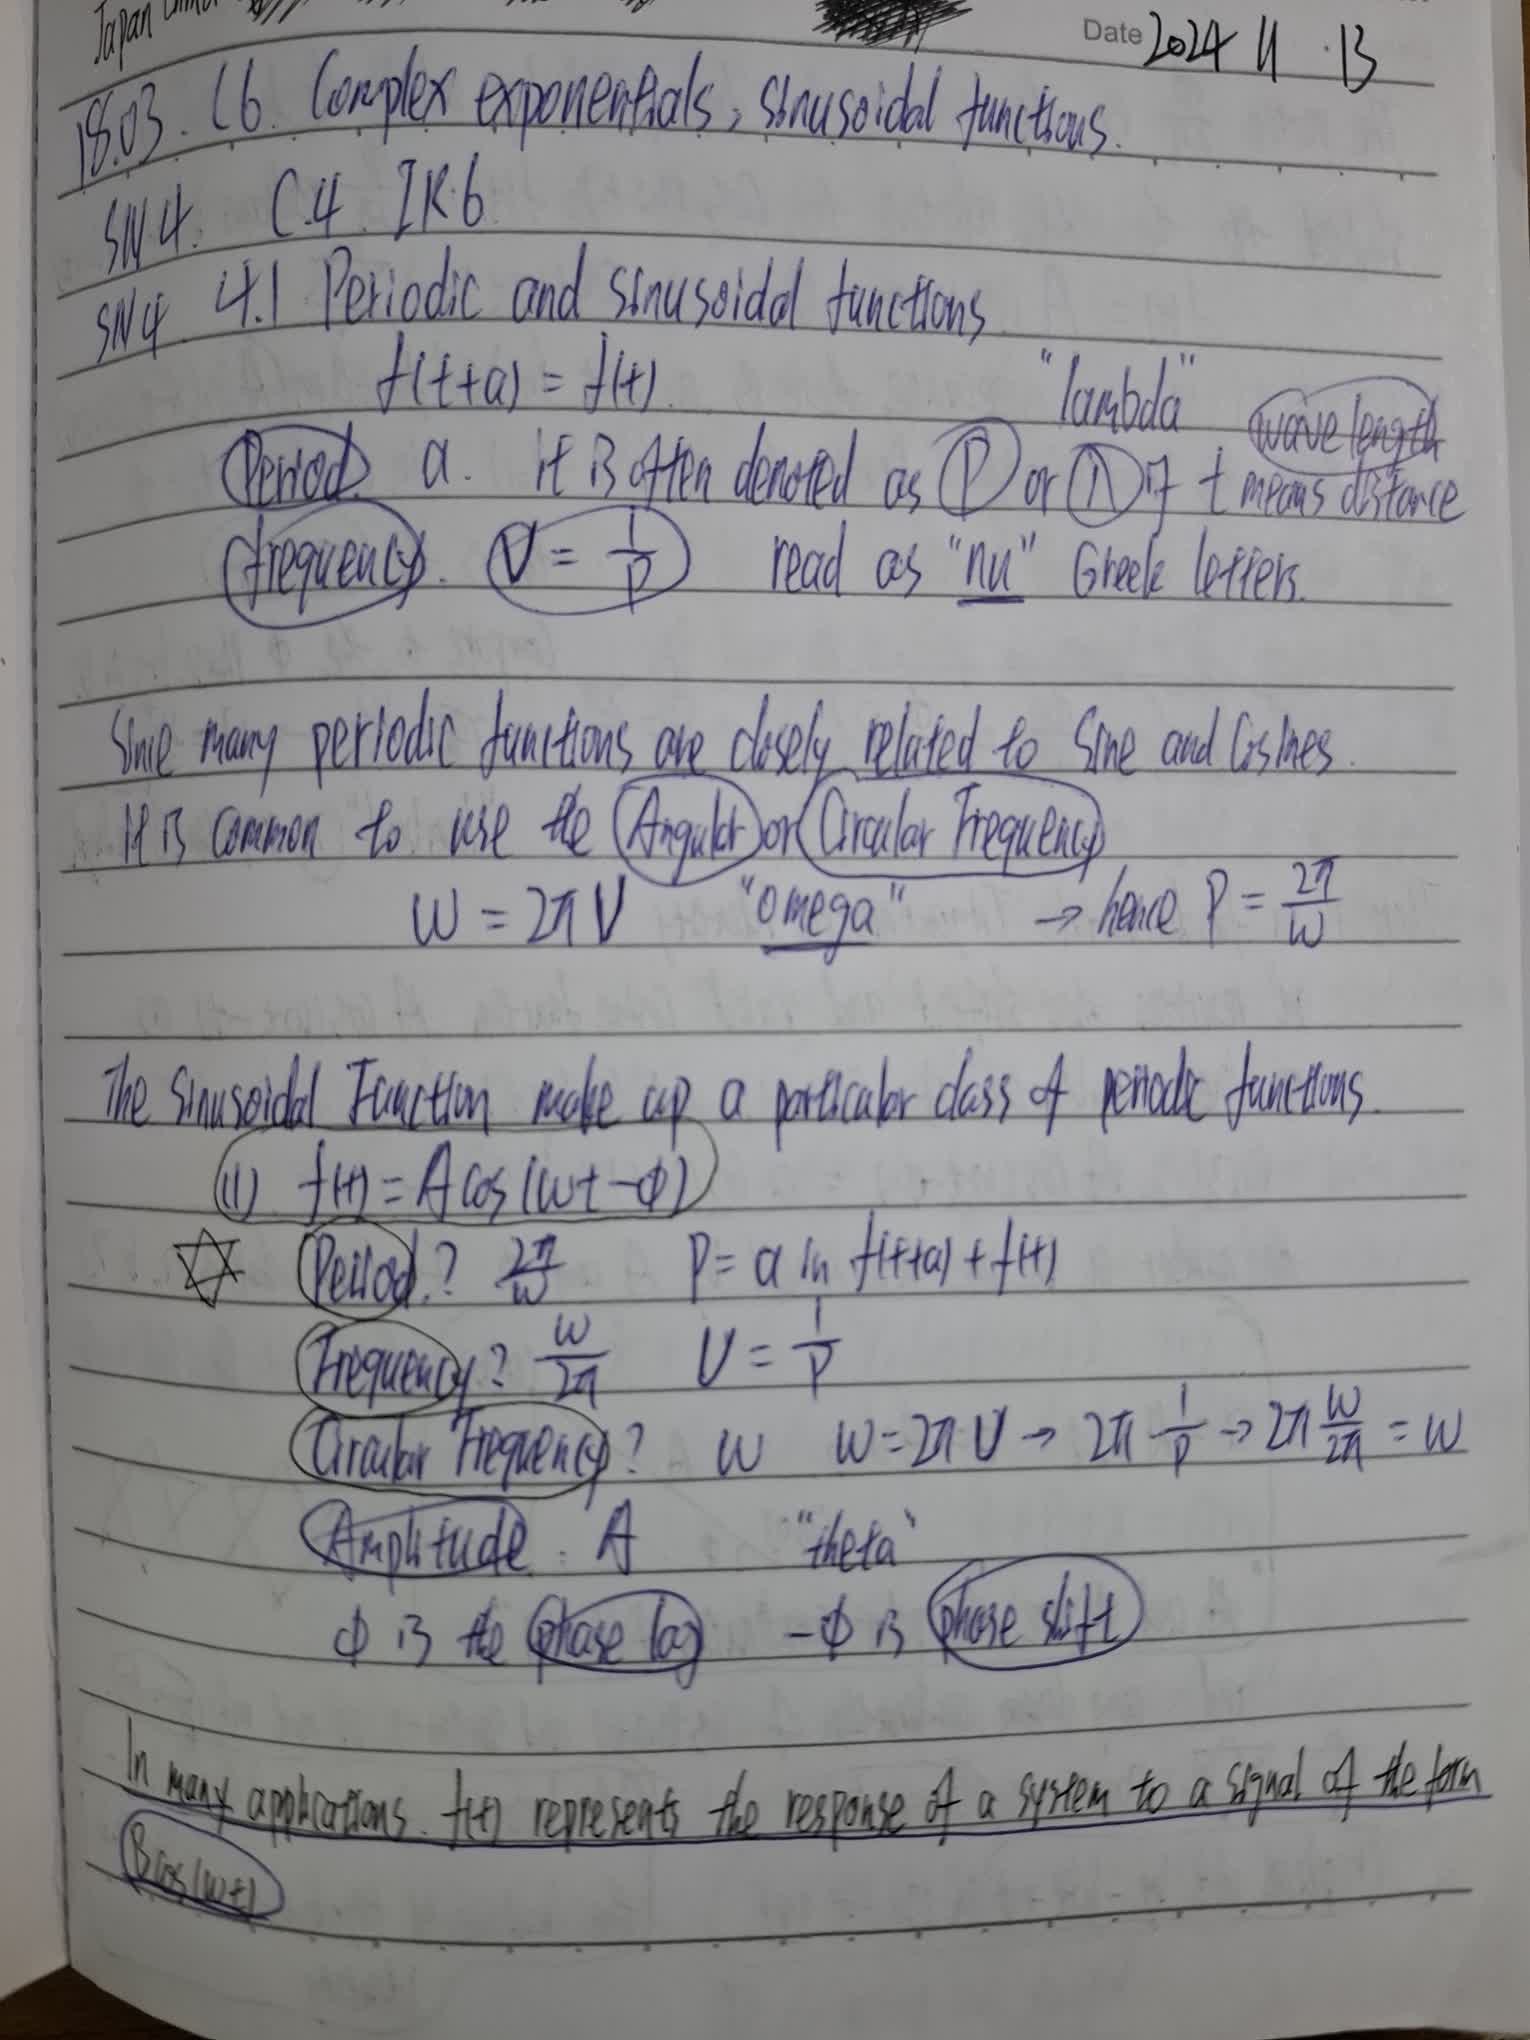 Japan
Date 2024 11 .13
18.03. L6. Complex exponentials, sinusoidal functions.
SN 4. C.4. IR.6
SN 4 4.1 Periodic and sinusoidal functions
f(t+a) = f(t)
"lambda" wave length
Period. a. it is often denoted as P or λ if t means distance
frequency. ν = 1/P read as "nu" Greek letters.
Since many periodic functions are closely related to Sine and Cosines.
it is common to use the Angular or Circular Frequency
ω = 2πν "omega" → hence P = 2π/ω
The Sinusoidal Function make up a particular class of periodic functions.
(1) f(t) = A cos(ωt - φ)
Period.? 2π/ω P = a in f(t+a) + f(t)
Frequency? ω/2π ν = 1/P
Circular Frequency? ω ω = 2πν → 2π 1/P → 2π ω/2π = ω
Amplitude. A "theta"
φ is the phase lag -φ is phase shift
In many applications. f(t) represents the response of a system to a signal of the form
B cos(ωt)